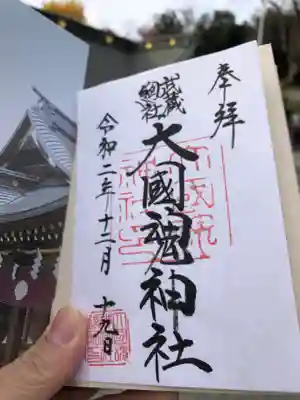 奉拝
武蔵
総社
大國魂神社
令和二年十二月十九日